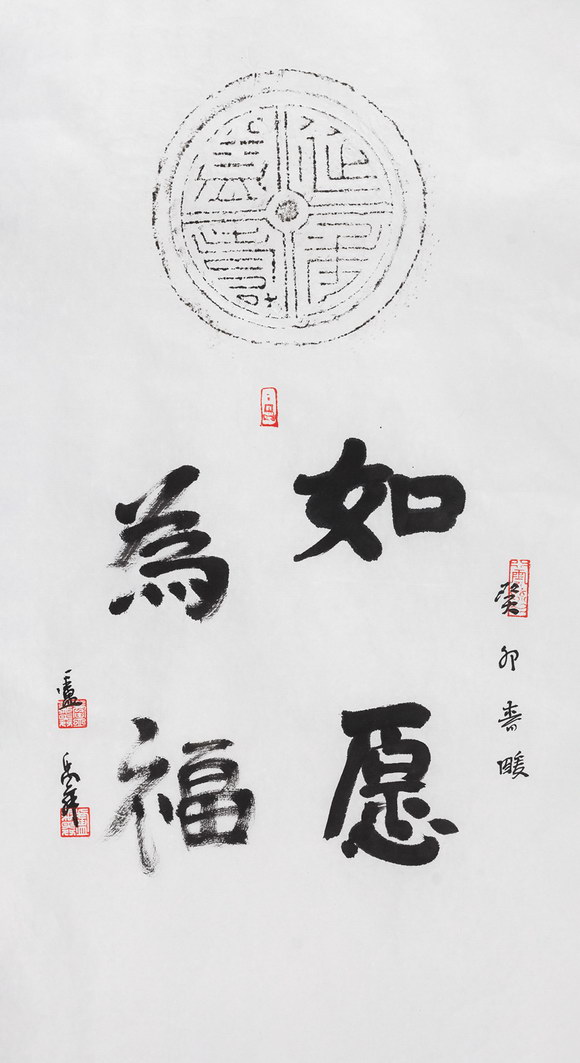 延年
益壽
癸卯春暖
如愿
為福
盧